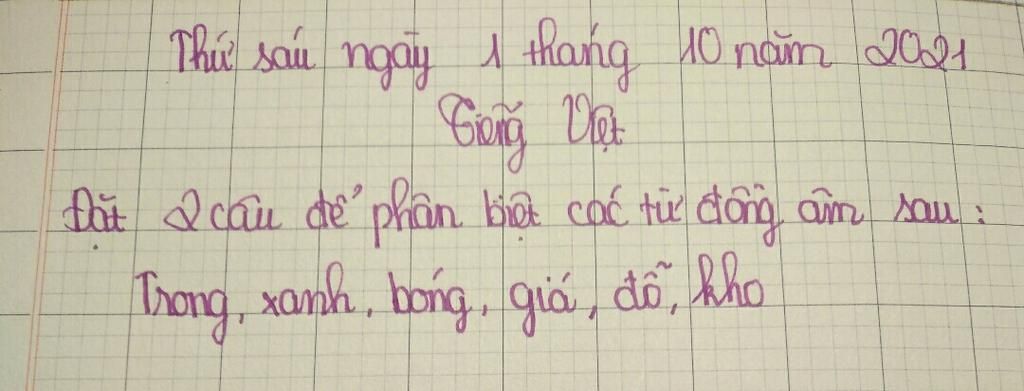 Thứ sáu ngày 1 tháng 10 năm 2021
Tiếng Việt
Đặt 2 câu để phân biệt các từ đồng âm sau :
Trong, xanh, bóng, giá, đỗ, kho